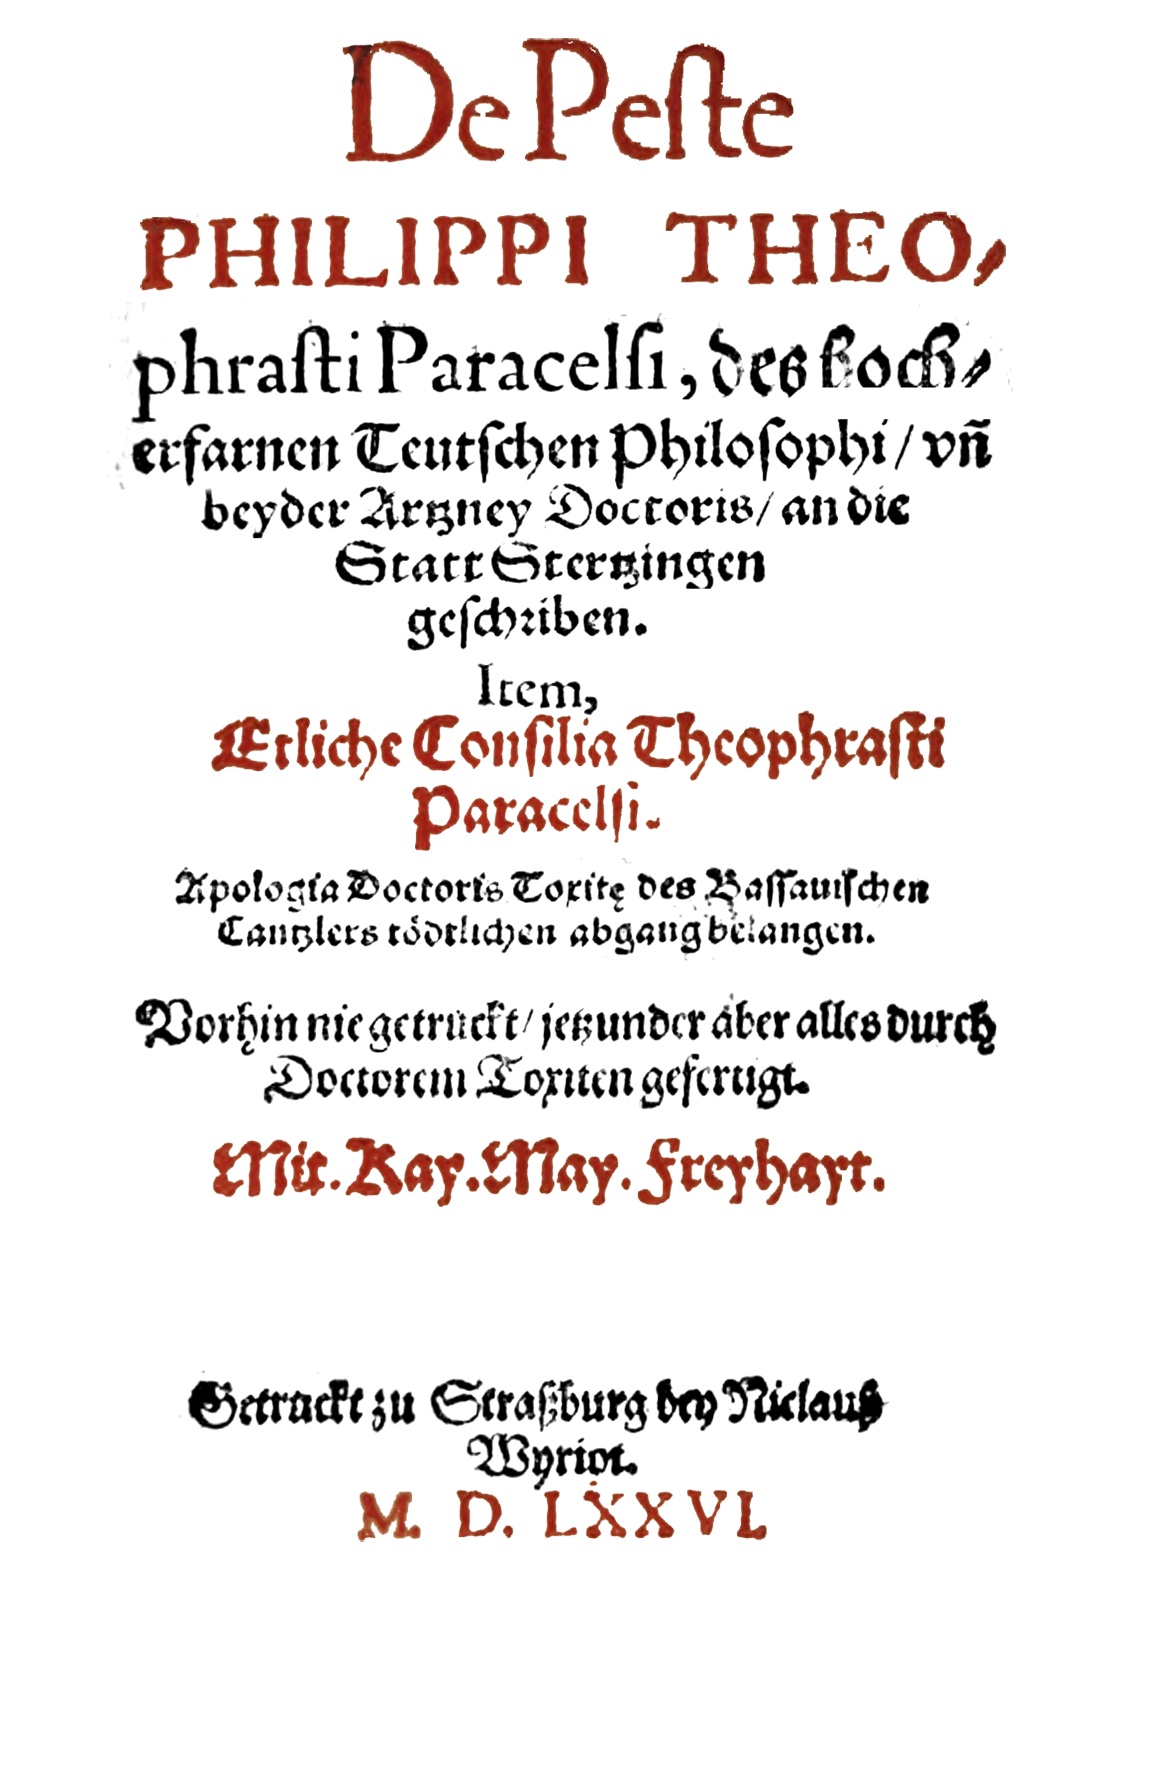 De Peſte
PHILIPPI THEO⸗
phraſti Paracelſi, des hoch⸗
erfarnen Teutſchen Philoſophi / vñ
beyder Artzney Doctoris / an die
Statt Stertzingen
geſchriben.
Item,
Etliche Conſilia Theophraſti
Paracelſi.
Apologia Doctoris Toxitę des Baſſauiſchen
Cantzlers tödtlichen abgang belangen.
Vorhin nie getruckt / jetzunder aber alles durch
Doctorem Toxiten gefertigt.
Mit. Kay. May. Freyhayt.
Getruckt zu Straßburg bey Niclauß
Wyriot.
M. D. LXXVI.